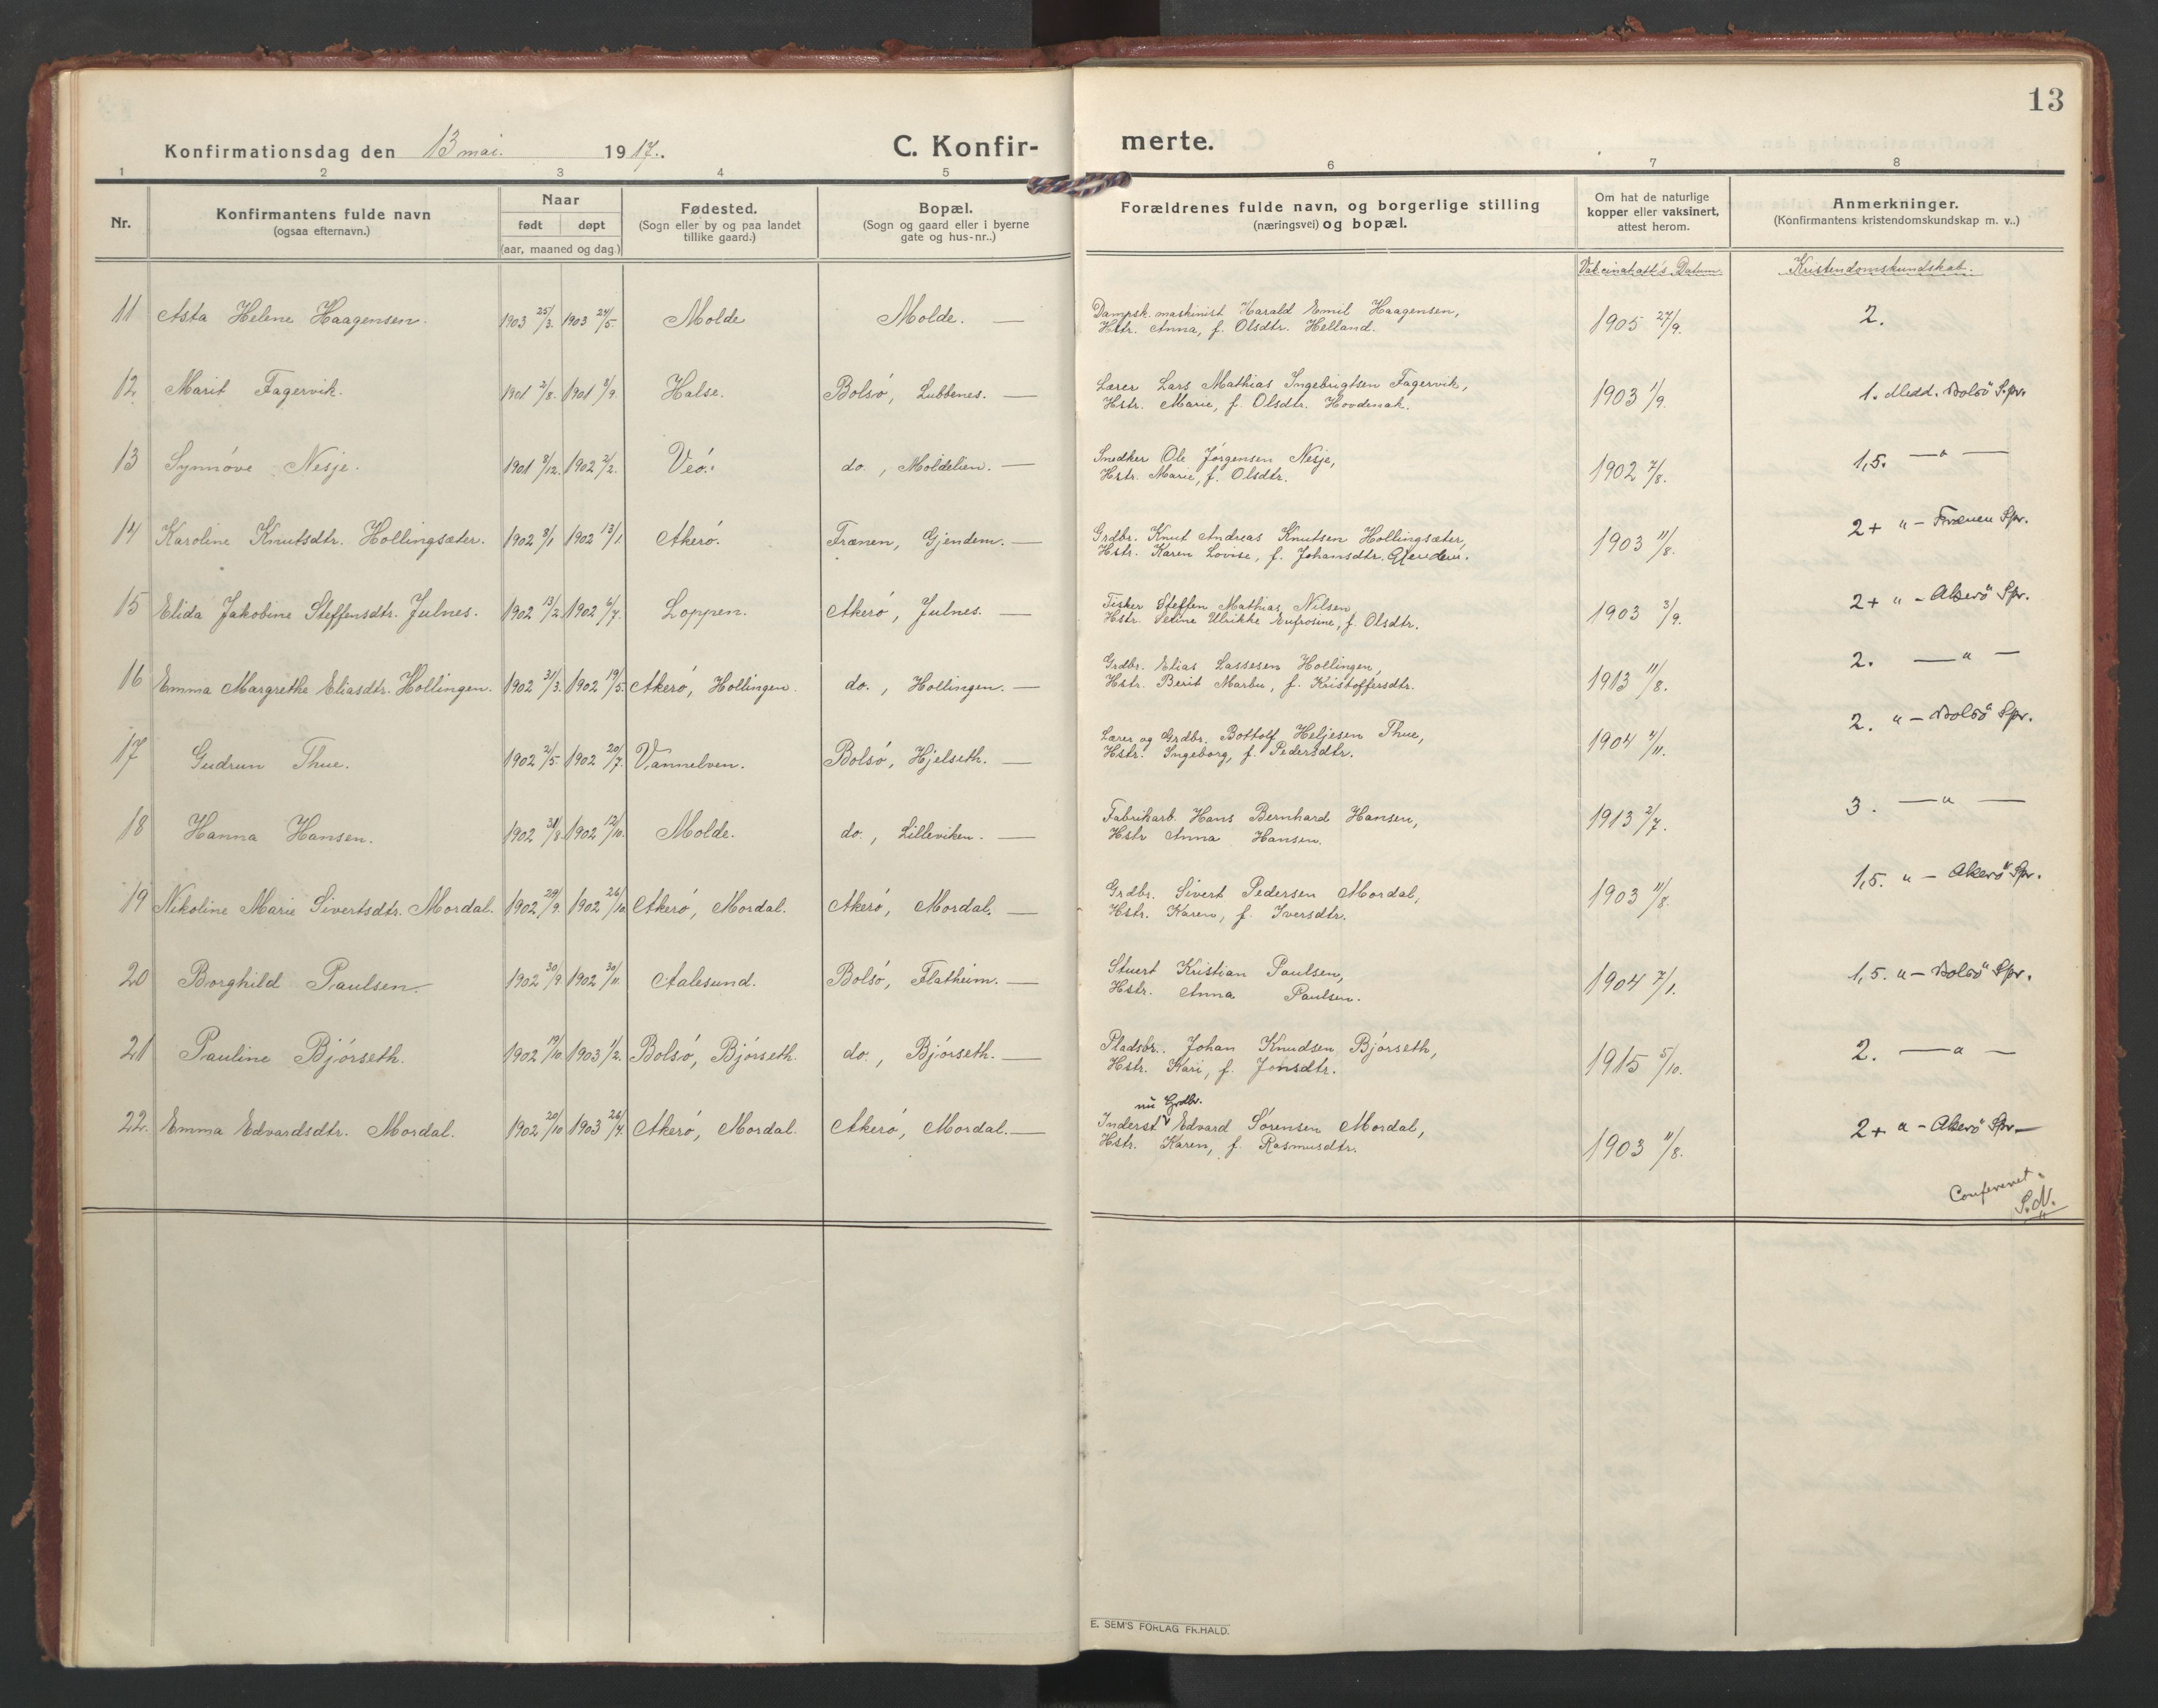 13
Konfirmationsdag den 13 mai. 1917.
C. Konfir- merte.
1 2 3 4 5 6 7 8
Nr.
Konfirmantens fulde navn
(ogsaa efternavn.)
Naar
født døpt
(aar, maaned og dag.)
Fødested.
(Sogn eller by og paa landet
tillike gaard.)
Bopæl.
(Sogn og gaard eller i byerne
gate og hus-nr..)
Forældrenes fulde navn, og borgerlige stilling
(næringsvei) og bopæl.
Om hat de naturlige
kopper eller vaksinert,
attest herom.
Anmerkninger.
(Konfirmantens kristendomskundskap m. v..)
Vakcinatatt's Datum. Kristendomskundskab.
11 Asta Helene Haagensen. 1903 25/3. 1903 24/5. Molde Molde. —
Dampsk. maskinist Harald Emil Haagensen,
Hstr. Anna, f. Olsdtr. Helland.
1905 27/9. 2.
12 Marit Fagervik. 1901 2/8. 1901 8/9. Halse. Bolsö, Lubbenes. —
Lærer Lars Mathias Ingebrigtsen Fagervik,
Hstr. Marie, f. Olsdtr. Hovdenak.
1903 1/9. 1. Medd. Bolsö Spr.
13 Synnöve Nesje. 1901 8/12. 1902 2/2. Veö. do., Moldelien. —
Snedker Ole Jörgensen Nesje,
Hstr. Marie, f. Olsdtr.
1902 7/8. 1,5. — " —
14 Karoline Knutsdtr. Hollingsæter. 1902 8/1 1902 13/1. Akerö. Frænen, Gjendem. —
Grdbr. Knut Andreas Knutsen Hollingsæter,
Hstr. Karen Lovise, f. Johansdtr. Gjendem.
1903 11/8. 2+ " – Frænen Spr.
15 Elida Jakobine Steffensdtr. Julnes. 1902 13/2. 1902 6/7. Loppen. Akerö, Julnes. —
Fisker Steffen Mathias Nilsen,
Hstr. Petine Ulrikke Eufrosine, f. Olsdtr.
1903 3/9. 2+ " – Akerö Spr.
16 Emma Margrethe Eliasdtr. Hollingen. 1902 31/3. 1902 19/5. Akerö, Hollingen. do., Hollingen. —
Grdbr. Elias Lassesen Hollingen,
Hstr. Berit Marbu, f. Kristoffersdtr.
1913 11/8. 2. — " —
17 Gudrun Thue. 1902 2/5. 1902 20/7. Vannelven. Bolsö, Hjelseth. —
Lærer og Grdbr. Bottolf Heljesen Thue,
Hstr. Ingeborg, f. Pedersdtr.
1904 4/11. 2. " – Bolsö Spr.
18 Hanna Hansen. 1902 31/8. 1902 12/10. Molde. do., Lilleviken. —
Fabrikarb. Hans Bernhard Hansen,
Hstr Anna Hansen.
1913 2/7. 3. — " —
19 Nikoline Marie Sivertsdtr. Mordal. 1902 29/9. 1902 26/10. Akerö, Mordal. Akerö, Mordal. —
Grdbr. Sivert Pedersen Mordal,
Hstr. Karen, f. Iversdtr.
1903 11/8. 1,5. " – Akerö Spr.
20 Borghild Paulsen. 1902 30/9 1902 30/11. Aalesund. Bolsö, Flatheim. —
Stuert Kristian Paulsen,
Hstr. Anna Paulsen.
1904 7/1. 1,5. " – Bolsö Spr.
21 Pauline Björseth. 1902 19/10. 1903 1/2. Bolsö, Björseth. do., Björseth. —
Pladsbr. Johan Knudsen Björseth,
Hstr. Kari, f. Jonsdtr.
1915 5/10. 2. — " —
22. Emma Edvardsdtr. Mordal. 1902 20/10 1903 26/4. Akerö, Mordal. Akerö, Mordal. —
nu Grdbr.
Inderst Edvard Sörensen Mordal,
Hstr. Karen, f. Rasmusdtr.
1903 11/8. 2+ " – Akerö Spr —
Confereret.
S.N.
E. SEM'S FORLAG FR.HALD.